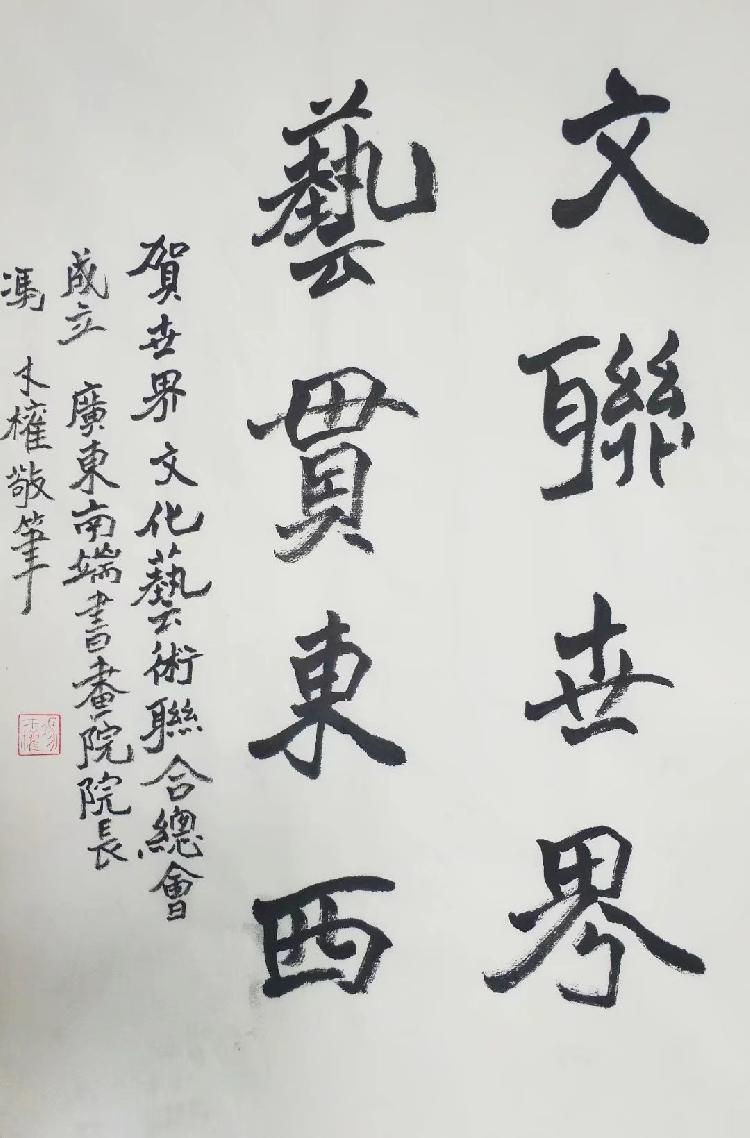 文聯世界
藝貫東西
賀世界文化藝術聯合總會
成立 廣東南端書畫院院長
馮木權敬筆